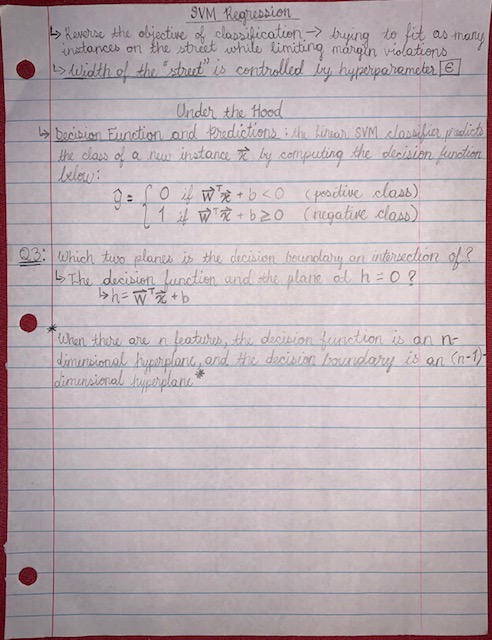 SVM Regression
↳ Reverse the objective of classification → trying to fit as many
instances on the street while limiting margin violations
↳ Width of the "street" is controlled by hyperparameter ϵ
Under the Hood
↳ Decision Function and Predictions: the linear SVM classifier predicts
the class of a new instance x⃗ by computing the decision function
below:
ŷ = { 0 if w⃗ᵀx⃗ + b < 0 (positive class)
1 if w⃗ᵀx⃗ + b ≥ 0 (negative class)
Q3: Which two planes is the decision boundary an intersection of?
↳ The decision function and the plane at h = 0?
↳ h = w⃗ᵀx⃗ + b
*When there are n features, the decision function is an n-
dimensional hyperplane, and the decision boundary is an (n-1)-
dimensional hyperplane*